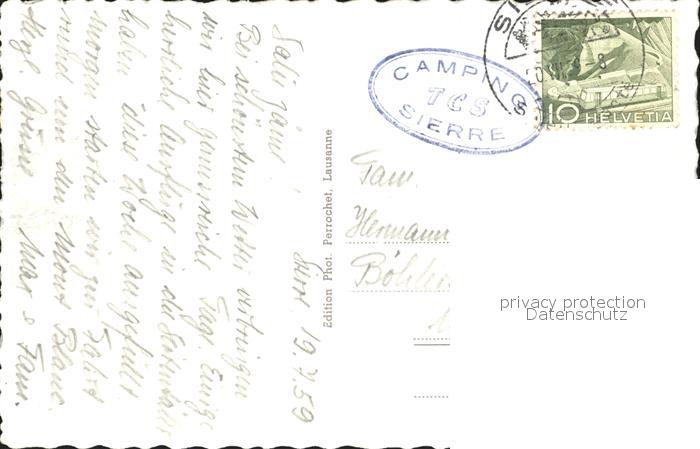 Sierre, 19.7.59
Salü zäme!
Bei schönstem Wetter verbringen
wir hier genussreiche Tage. Einige
herrliche Ausflüge in die Seitentäler
haben diese Woche ausgefüllt
morgen starten wir zur Fahrt
rund um den Mont Blanc.
Herzl. Grüsse Max & Fam.
Edition Phot. Perrochet, Lausanne
CAMPING
TCS
SIERRE
10 HELVETIA
Fam.
Hermann
privacy protection
Datenschutz